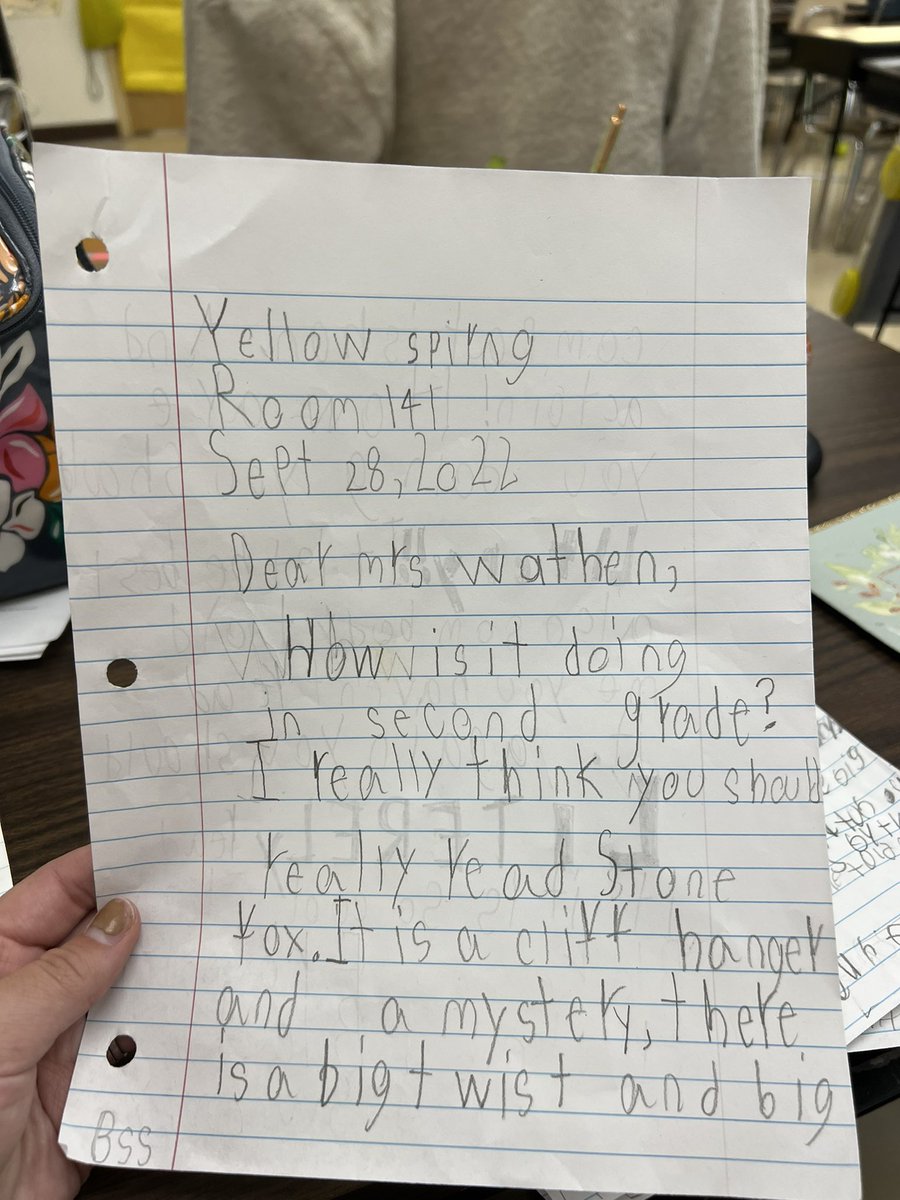 Yellow spirng
Room 141
Sept 28, 2022
Dear mrs wathen,
How is it doing
in second grade?
I really think you should
really read Stone
fox. It is a cliff hanger
and a mystery, there
is a big twist and big
Bss
big